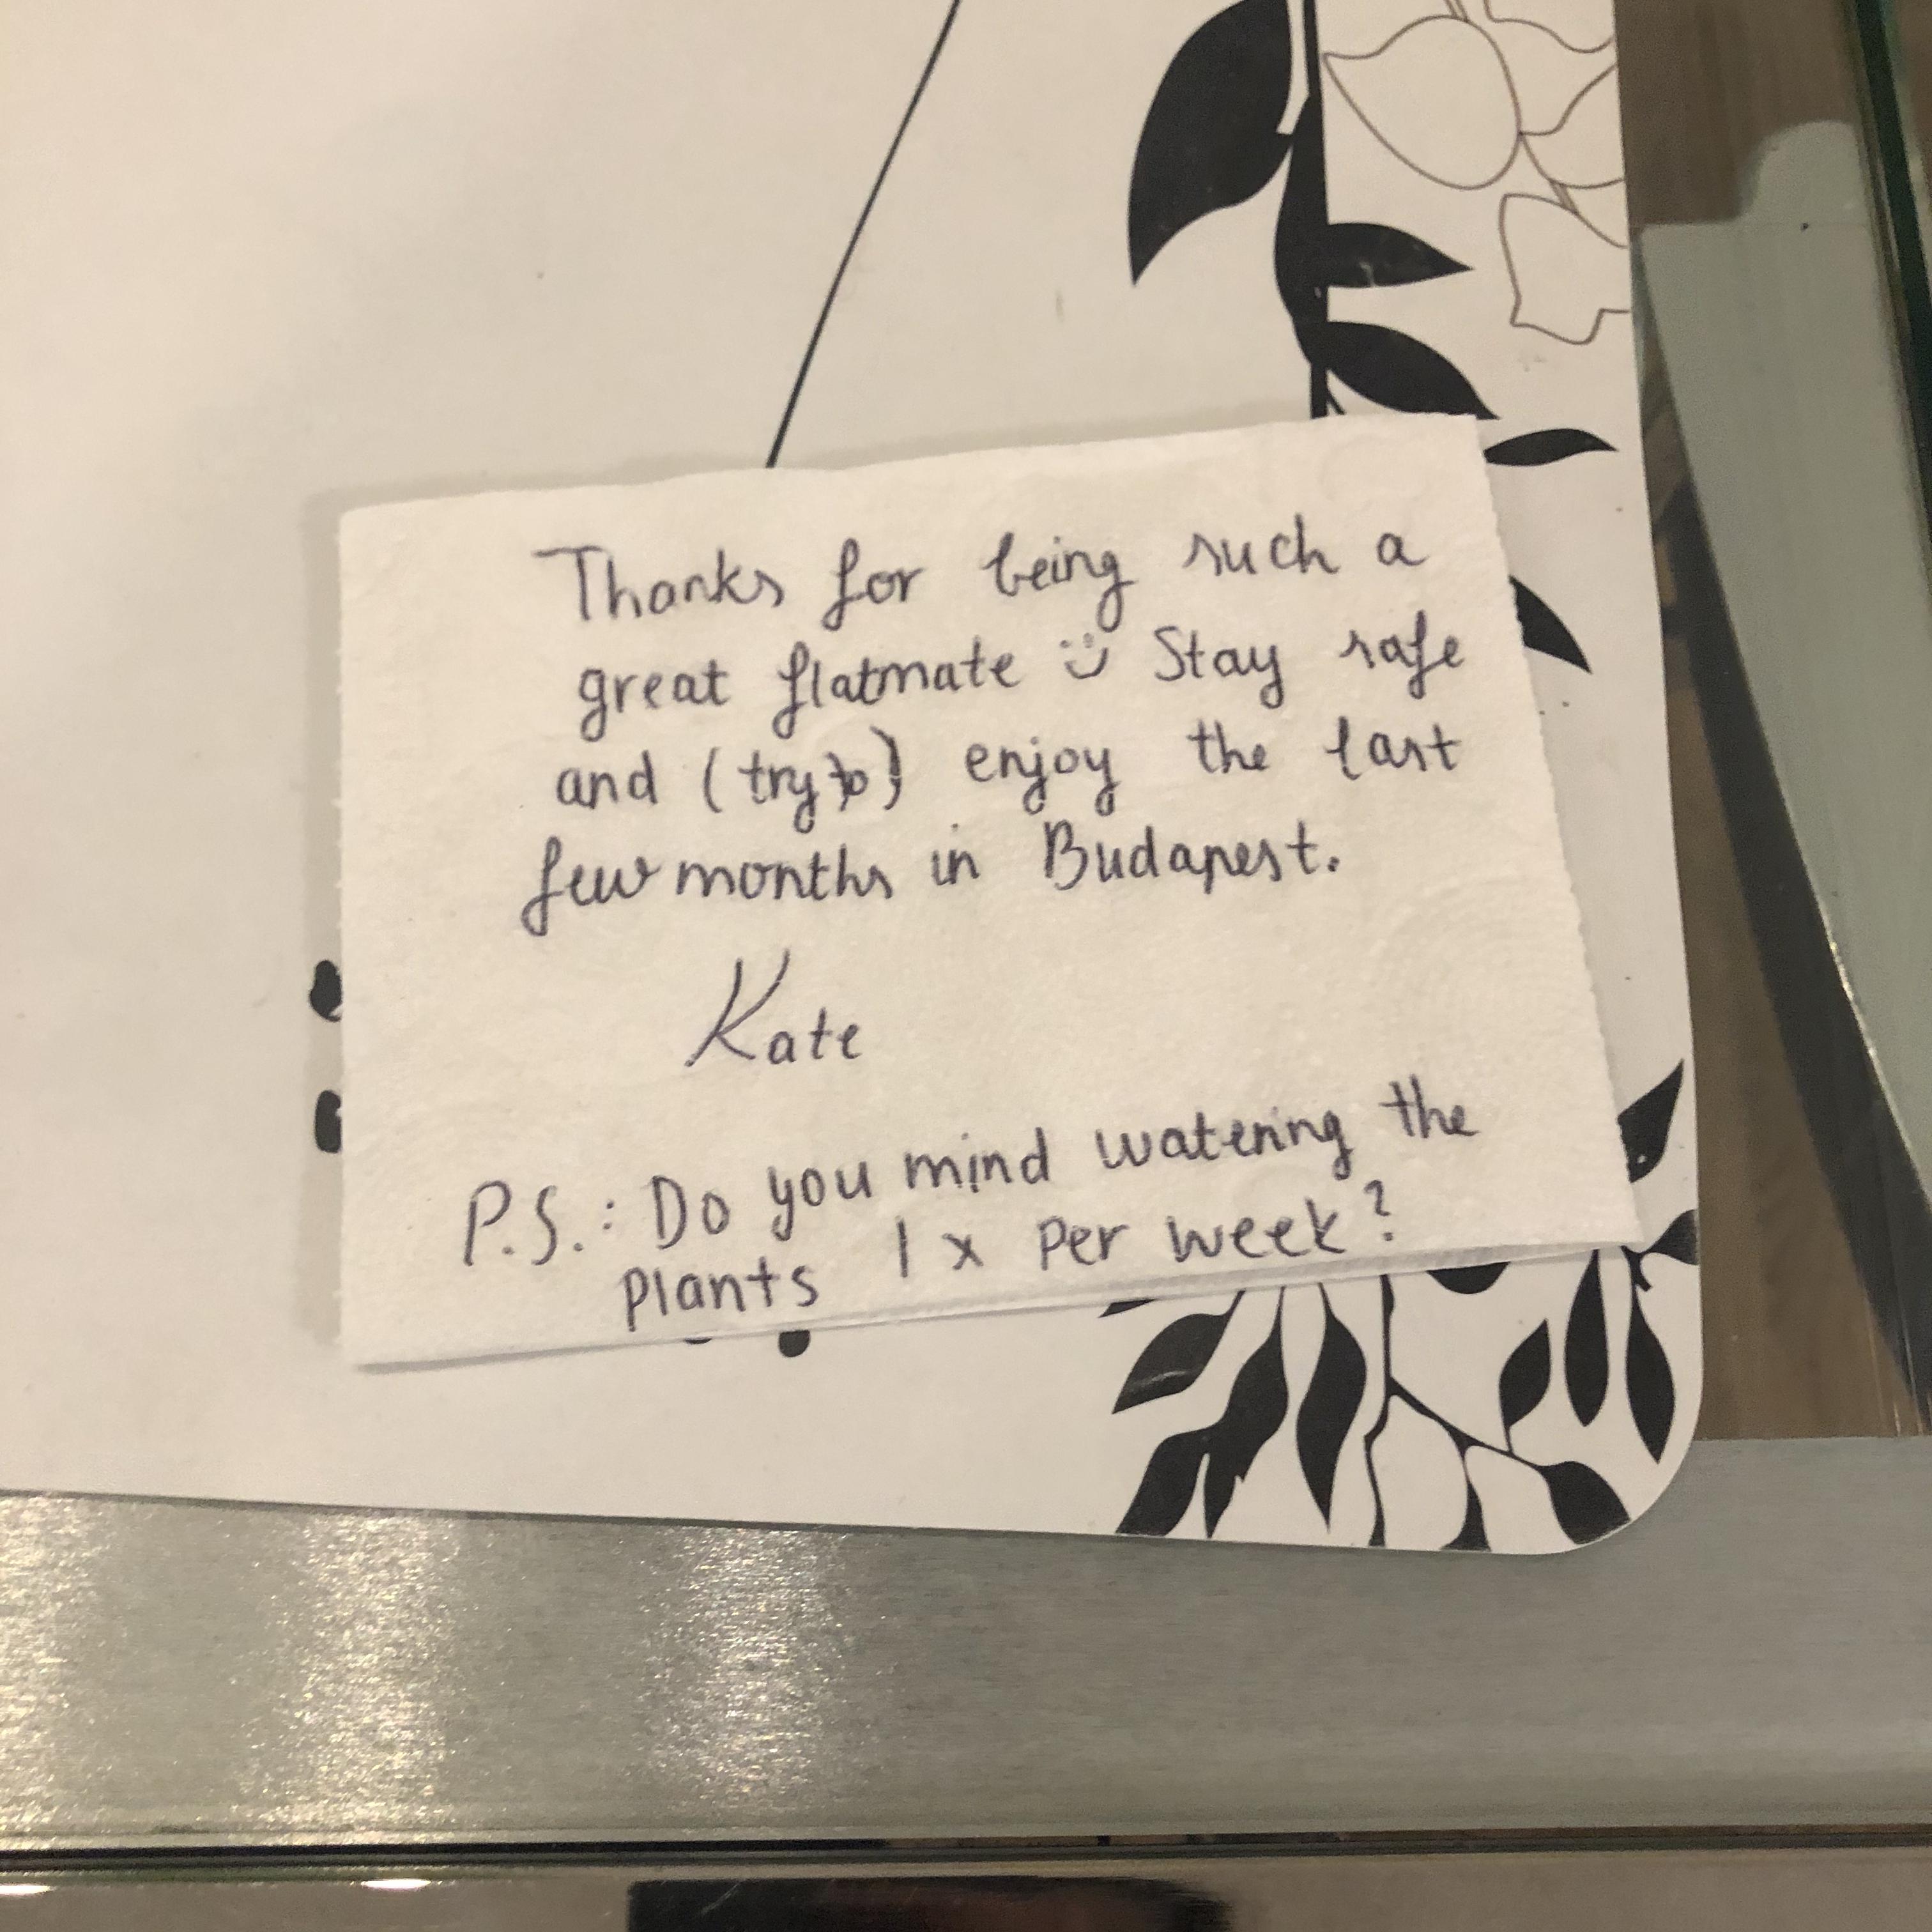 Thanks for being such a
great flatmate :) Stay safe
and (try to) enjoy the last
few months in Budapest.
Kate
P.S.: Do you mind watering the
plants 1x per week?